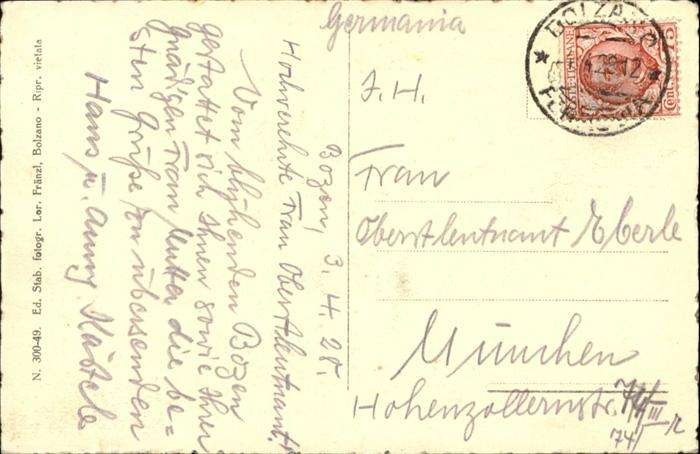 Germania
BOLZANO
FERROVIA
Bozen, 3. 4. 28.
Hochverehrte Frau Oberstleutnant!
Vom blühenden Bozen
gestattet sich Ihnen sowie Ihrer
gnädigen Frau Mutter die be-
sten Grüße zu übersenden
Hans u. Anny
I. H.
Frau
Oberstleutnant Eberle
München
Hohenzollernstr.
74
N. 300-49. Ed. Stab. fotogr. Lor. Fränzl, Bolzano - Ripr. vietata